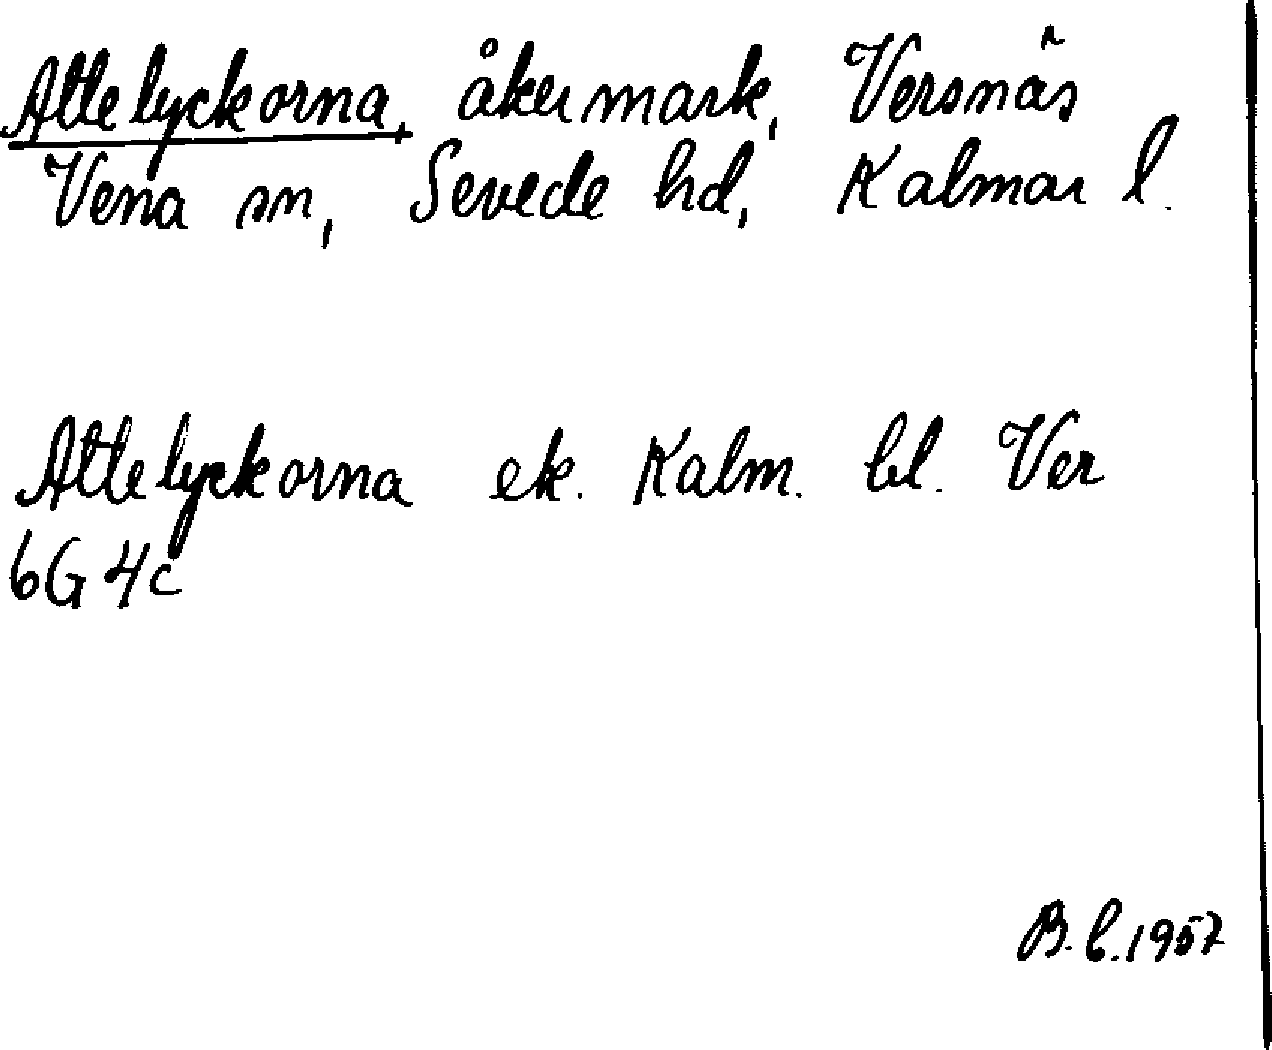 Attelyckorna, åkermark, Versnäs
Vena sn, Sevede hd, Kalmar l.
Attelyckorna ek. Kalm. bl. Ver
6G 4c
B. l. 1957